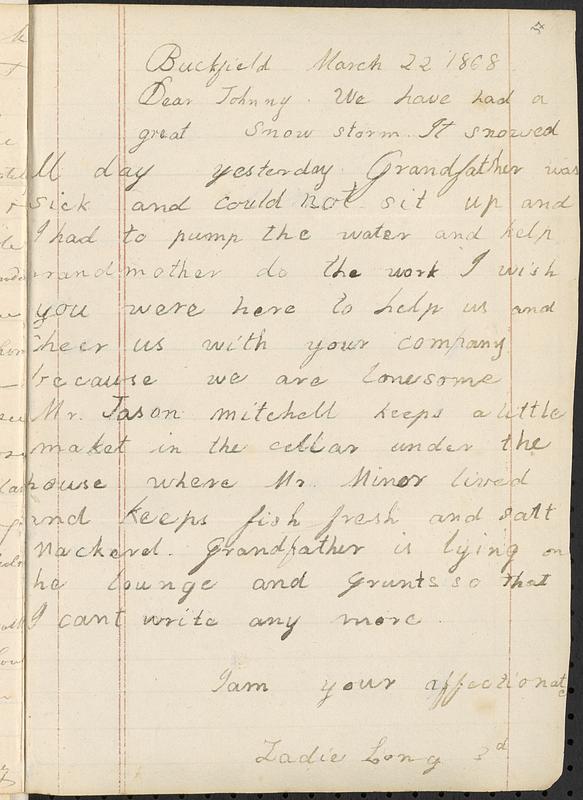 54
Buckfield March 22 1868
Dear Johnny. We have had a
great Snow storm. It snowed
all day yesterday Grandfather was
sick and could not sit up and
I had to pump the water and help
grandmother do the work I wish
you were here to help us and
cheer us with your company
because we are lonesome
Mr. Jason mitchell keeps a little
maket in the cellar under the
house where Mr. Minor lived
and keeps fish fresh and salt
Mackerel. Grandfather is lying on
the lounge and Grunts so that
I cant write any more.
I am your affectionate
Zadie Long 3d